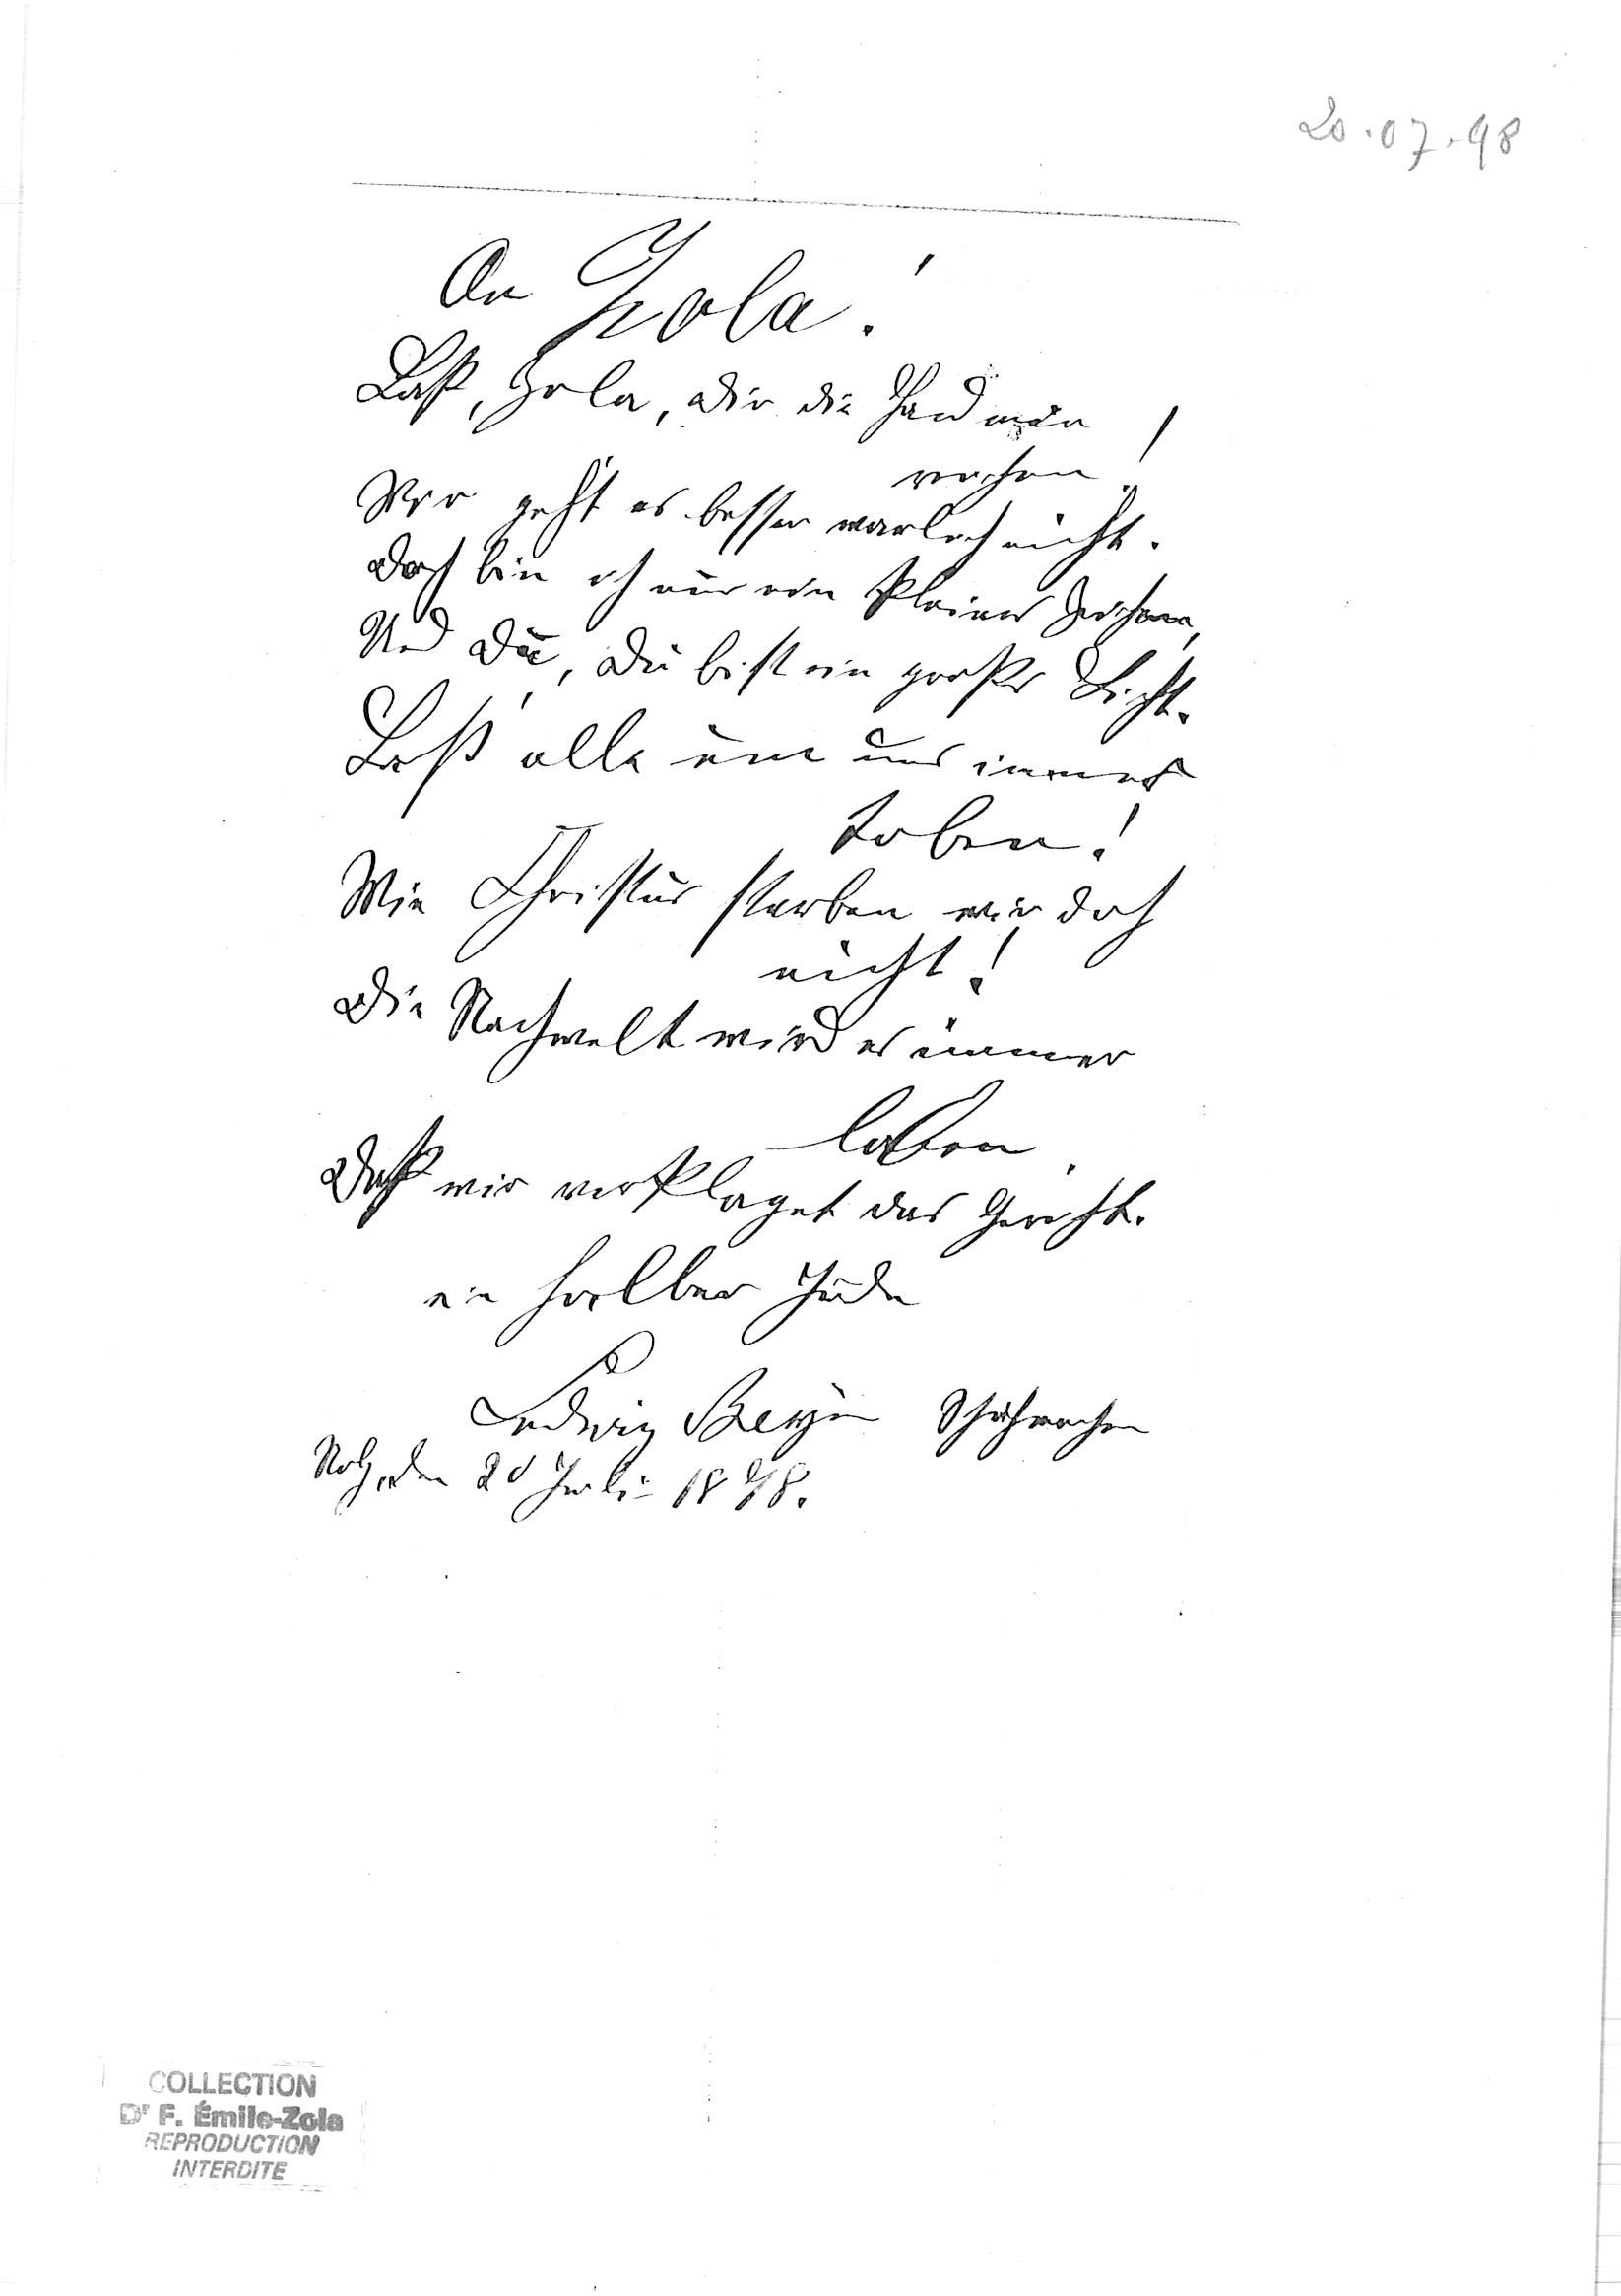 20.07.98
An Zola!
Laß, Zola, Dir die Hand mein
reichen!
Mir geht es besser warlich nicht.
Doch bin ich nur ein kleines Zeichen,
Und Du, Du bist ein großes Licht.
Laß alle um uns immer
toben!
Wie Christus starben wir doch
nicht!
Die Nachwelt wird es immer
loben,
Daß wir verklaget das Gericht.
ein halber Jude
Ludwig
den 20 Juli 1898.
COLLECTION
Dr F. Émile-Zola
REPRODUCTION
INTERDITE